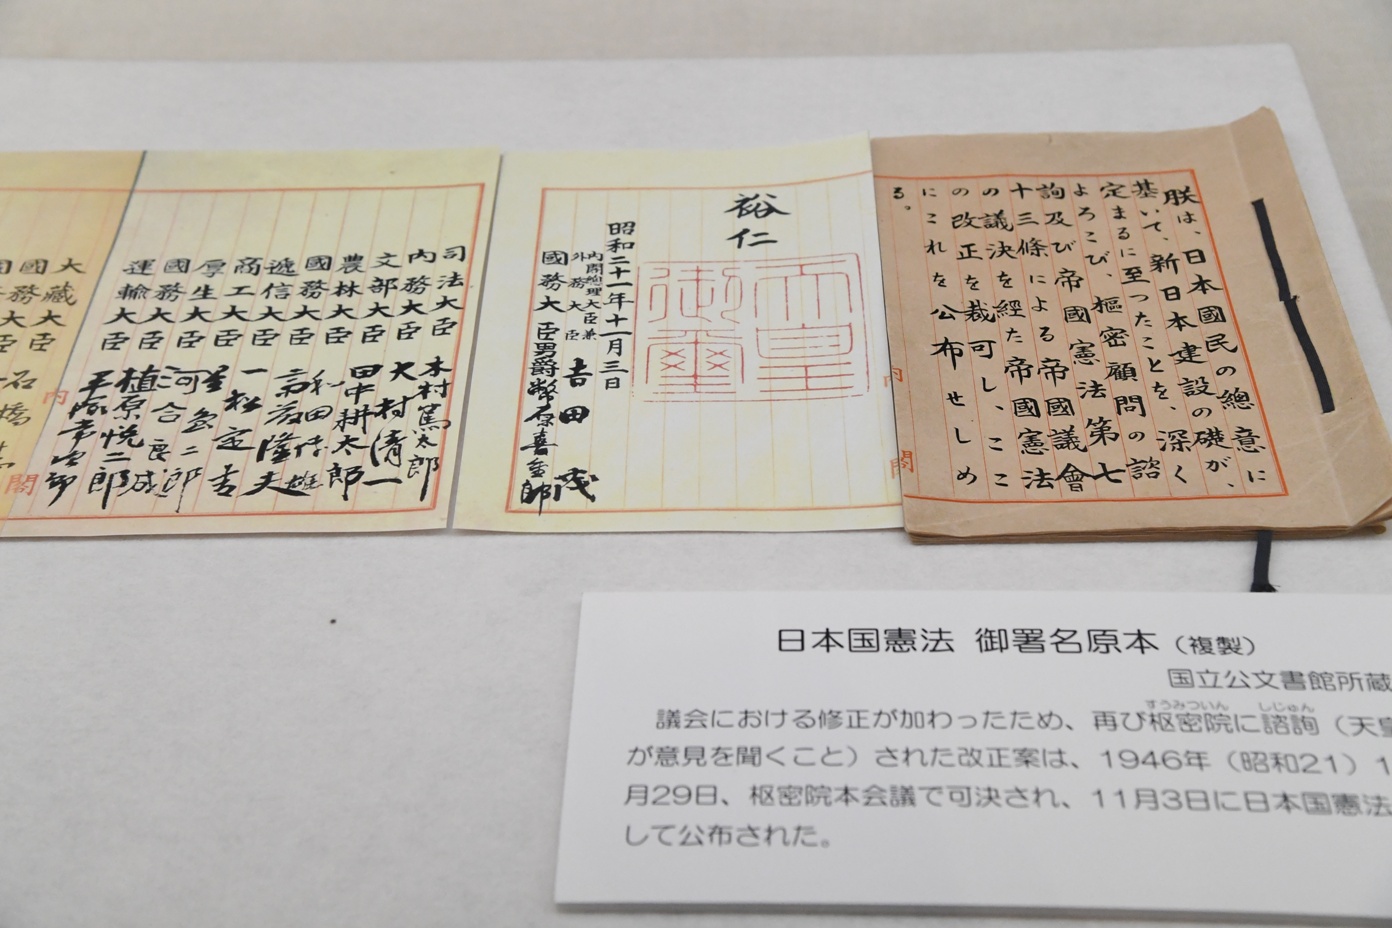 朕は、日本國民の總意に
基いて、新日本建設の礎が、
定まるに至つたことを、深く
よろこび、樞密顧問の諮
詢及び帝國憲法第七
十三條による帝國議會
の議決を經た帝國憲法
の改正を裁可し、ここ
にこれを公布せしめ
る。
内閣
裕仁
天皇御璽
昭和二十一年十一月三日
内閣總理大臣兼
外務大臣 吉田茂
國務大臣 男爵幣原喜重郎
司法大臣 木村篤太郎
内務大臣 大村清一
文部大臣 田中耕太郎
農林大臣 和田博雄
國務大臣 斎藤隆夫
遞信大臣 一松定吉
商工大臣 星島二郎
厚生大臣 河合良成
國務大臣 植原悦二郎
運輸大臣 平塚常次郎
内閣
大藏大臣 石橋
國務大臣
日本国憲法 御署名原本（複製）
国立公文書館所蔵
すうみついん しじゅん
議会における修正が加わったため、再び枢密院に諮詢（天皇
が意見を聞くこと）された改正案は、1946年（昭和21）1
月29日、枢密院本会議で可決され、11月3日に日本国憲法
して公布された。